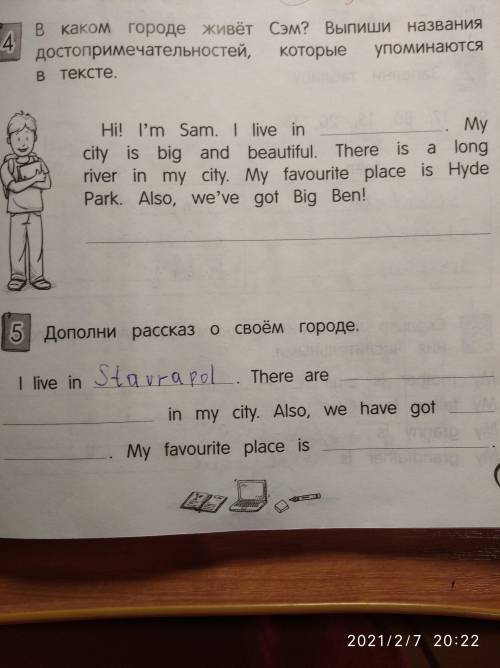 4 В каком городе живёт Сэм? Выпиши названия
достопримечательностей, которые упоминаются
в тексте.
Hi! I'm Sam. I live in ____________. My
city is big and beautiful. There is a long
river in my city. My favourite place is Hyde
Park. Also, we've got Big Ben!
5 Дополни рассказ о своём городе.
I live in Stavrapol. There are ____________
____________ in my city. Also, we have got ____
____________. My favourite place is ____________.
2021/2/7 20:22